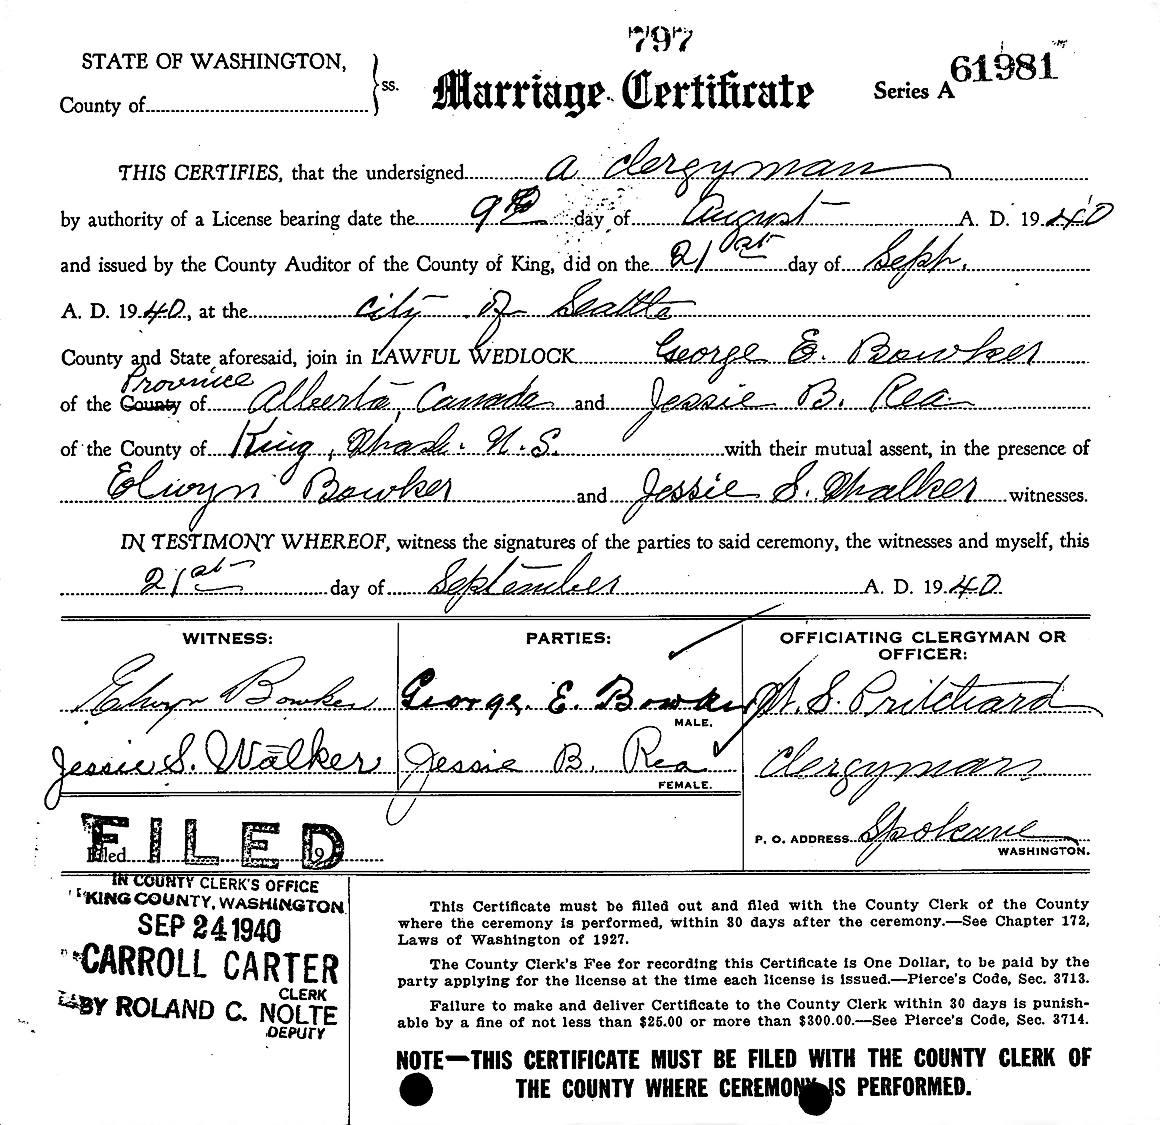 797
STATE OF WASHINGTON,
County of
ss.
Marriage Certificate
Series A 61981
THIS CERTIFIES, that the undersigned a clergyman
by authority of a License bearing date the 9th day of August A. D. 1940
and issued by the County Auditor of the County of King, did on the 21st day of Sept.
A. D. 1940, at the city of Seattle
County and State aforesaid, join in LAWFUL WEDLOCK George E. Bowker
Province
of the County of Alberta, Canada and Jessie B. Rea
of the County of King, Wash. U.S. with their mutual assent, in the presence of
Elwyn Bowker and Jessie S. Walker witnesses.
IN TESTIMONY WHEREOF, witness the signatures of the parties to said ceremony, the witnesses and myself, this
21st day of September A. D. 1940
WITNESS:
Elwyn Bowker
Jessie S. Walker
PARTIES:
George E. Bowker
MALE.
Jessie B. Rea
FEMALE.
OFFICIATING CLERGYMAN OR
OFFICER:
S. Pritchard
Clergyman
P. O. ADDRESS Spokane
WASHINGTON.
FILED
Filed 19
IN COUNTY CLERK'S OFFICE
KING COUNTY, WASHINGTON
SEP 24 1940
CARROLL CARTER
CLERK
BY ROLAND C. NOLTE
DEPUTY
This Certificate must be filled out and filed with the County Clerk of the County
where the ceremony is performed, within 30 days after the ceremony.—See Chapter 172,
Laws of Washington of 1927.
The County Clerk's Fee for recording this Certificate is One Dollar, to be paid by the
party applying for the license at the time each license is issued.—Pierce's Code, Sec. 3713.
Failure to make and deliver Certificate to the County Clerk within 30 days is punish-
able by a fine of not less than $25.00 or more than $300.00.—See Pierce's Code, Sec. 3714.
NOTE—THIS CERTIFICATE MUST BE FILED WITH THE COUNTY CLERK OF
THE COUNTY WHERE CEREMONY IS PERFORMED.